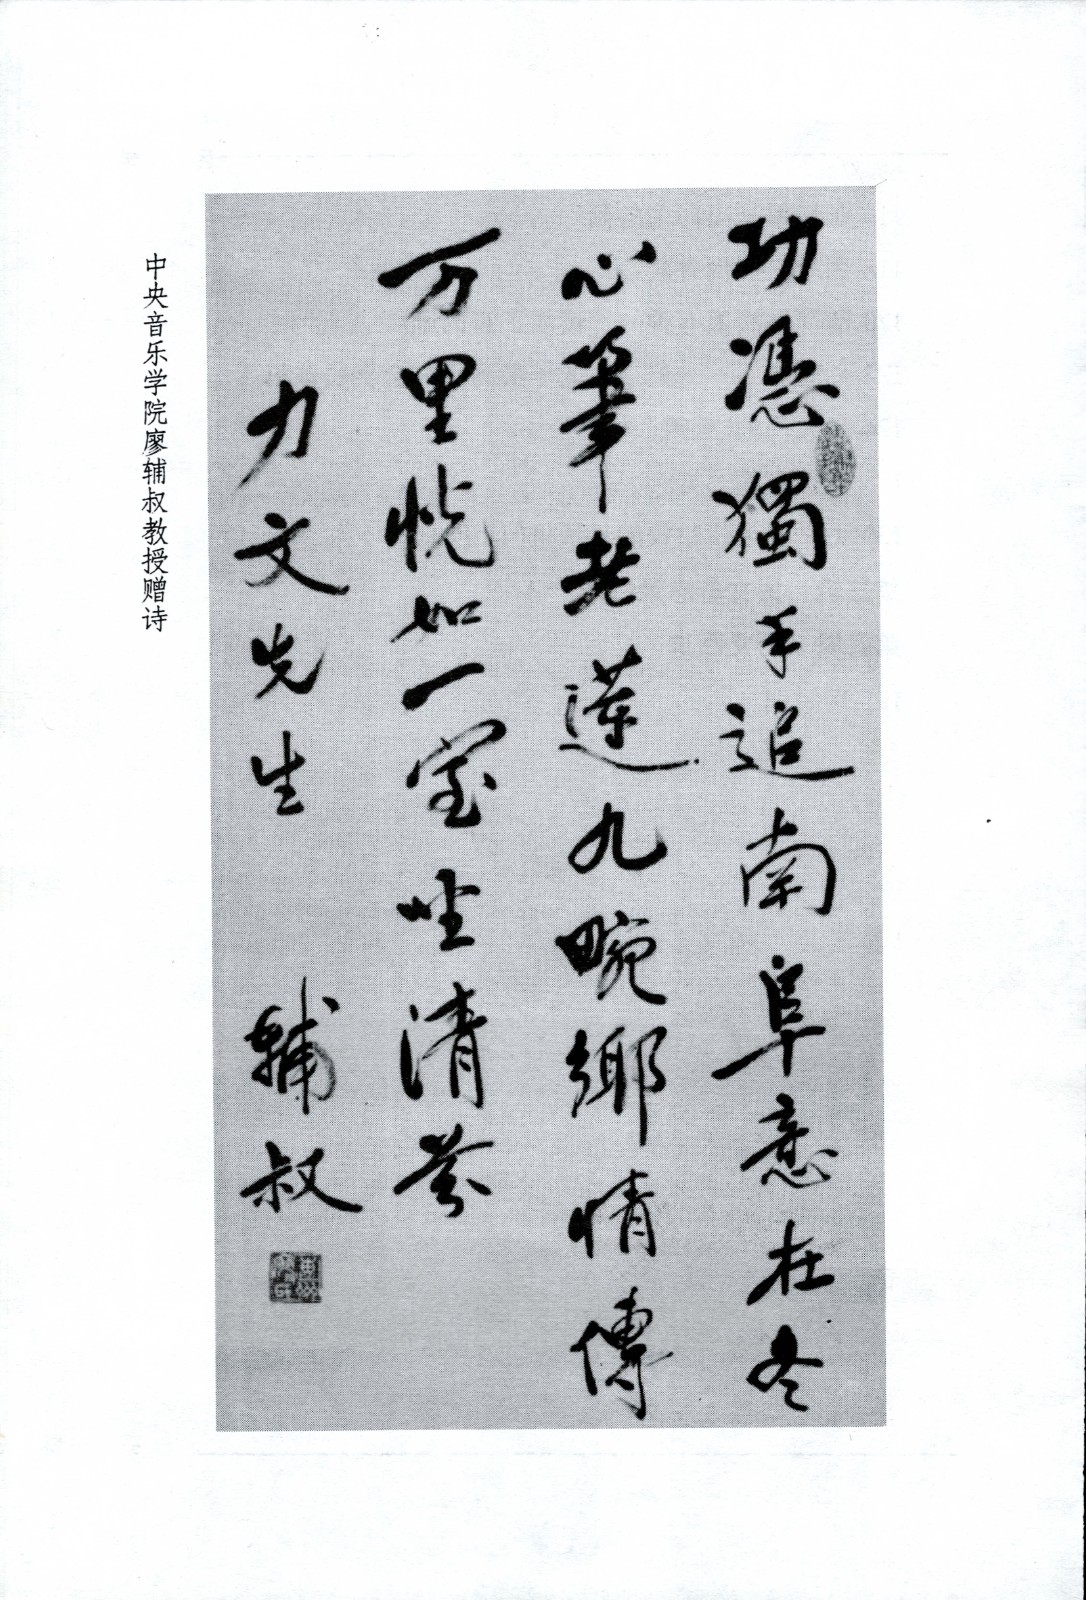 功憑獨手追南阜意在冬
心筆老蓮九畹鄉情傳
万里恍如一室坐清芬
力文先生 輔叔
中央音乐学院廖辅叔教授赠诗